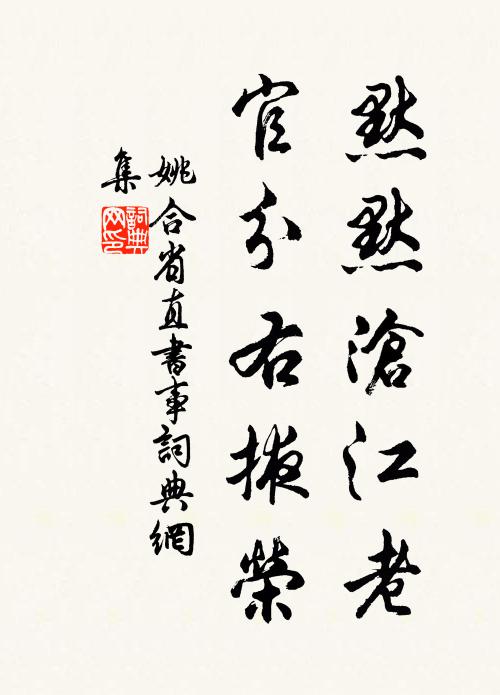 黙黙滄江老
官分右掖榮
姚合省直書事詞典網
集
詞典
网印